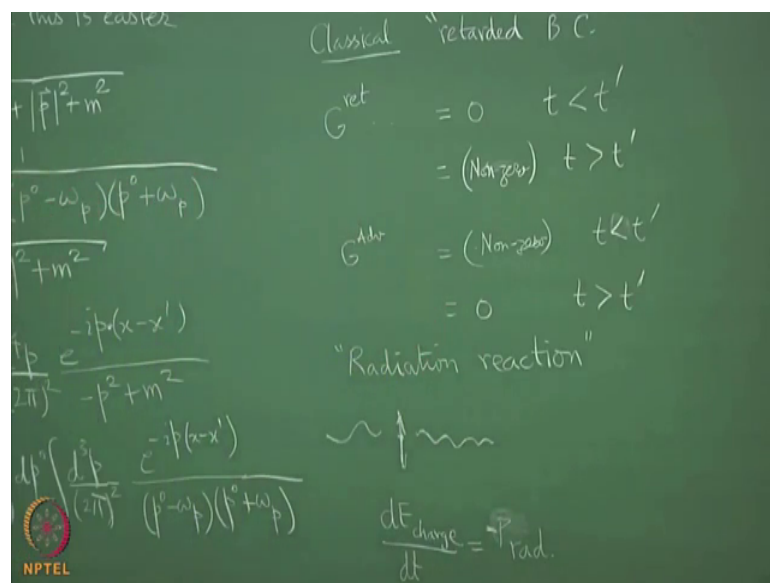 This is easier
+ |p⃗|² + m²
1
p⁰ - ω_p)(p⁰ + ω_p)
|² + m²
p e^{-ip•(x-x')}
(2π)² -p² + m²
dp⁰ ∫ d³p e^{-ip(x-x')}
(2π)² (p⁰-ω_p)(p⁰+ω_p)
Classical "retarded B C.
G^{ret} = 0 t < t'
= (Non-zero) t > t'
G^{Adv} = (Non-zero) t < t'
= 0 t > t'
"Radiation reaction"
dE_{charge}/dt = P_{rad.}
NPTEL